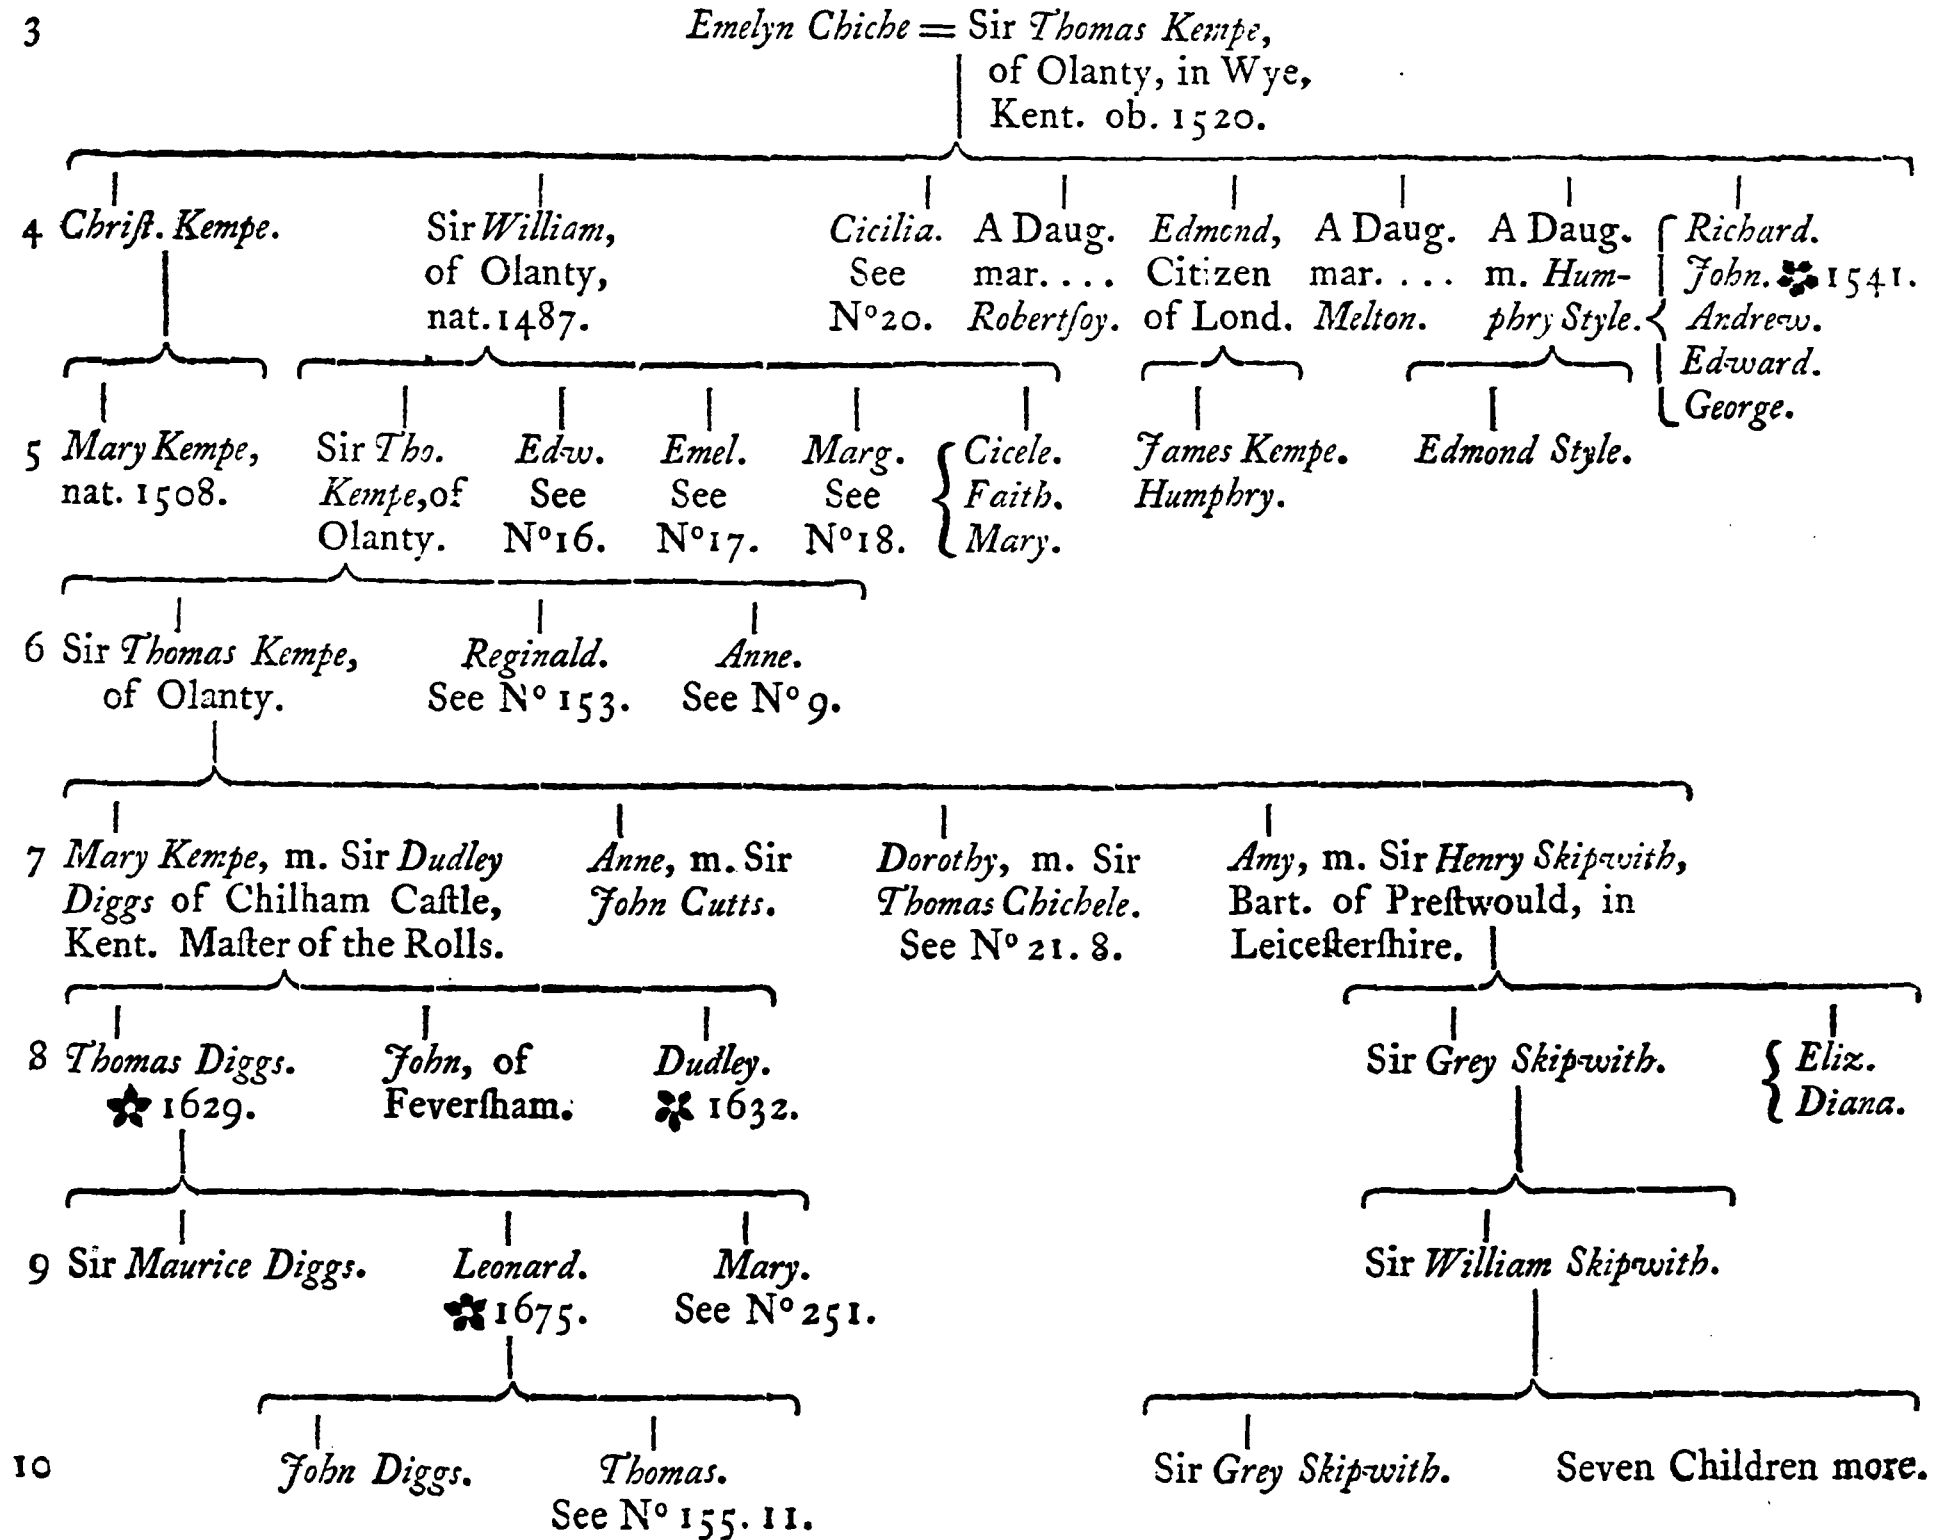 3 Emelyn Chiche = Sir Thomas Kempe,
of Olanty, in Wye,
Kent. ob. 1520.
4 Chriſt. Kempe.
Sir William,
of Olanty,
nat. 1487.
Cicilia.
See
Nº 20.
A Daug.
mar. . . .
Robertſoy.
Edmond,
Citizen
of Lond.
A Daug.
mar. . . .
Melton.
A Daug.
m. Hum-
phry Style.
Richard.
John. 1541.
Andrew.
Edward.
George.
5 Mary Kempe,
nat. 1508.
Sir Tho.
Kempe, of
Olanty.
Edw.
See
Nº 16.
Emel.
See
Nº 17.
Marg.
See
Nº 18.
Cicele.
Faith.
Mary.
James Kempe.
Humphry.
Edmond Style.
6 Sir Thomas Kempe,
of Olanty.
Reginald.
See Nº 153.
Anne.
See Nº 9.
7 Mary Kempe, m. Sir Dudley
Diggs of Chilham Caſtle,
Kent. Maſter of the Rolls.
Anne, m. Sir
John Cutts.
Dorothy, m. Sir
Thomas Chichele.
See Nº 21. 8.
Amy, m. Sir Henry Skipwith,
Bart. of Preſtwould, in
Leiceſterſhire.
8 Thomas Diggs.
1629.
John, of
Feverſham.
Dudley.
1632.
Sir Grey Skipwith.
Eliz.
Diana.
9 Sir Maurice Diggs.
Leonard.
1675.
Mary.
See Nº 251.
Sir William Skipwith.
10 John Diggs.
Thomas.
See Nº 155. 11.
Sir Grey Skipwith.
Seven Children more.